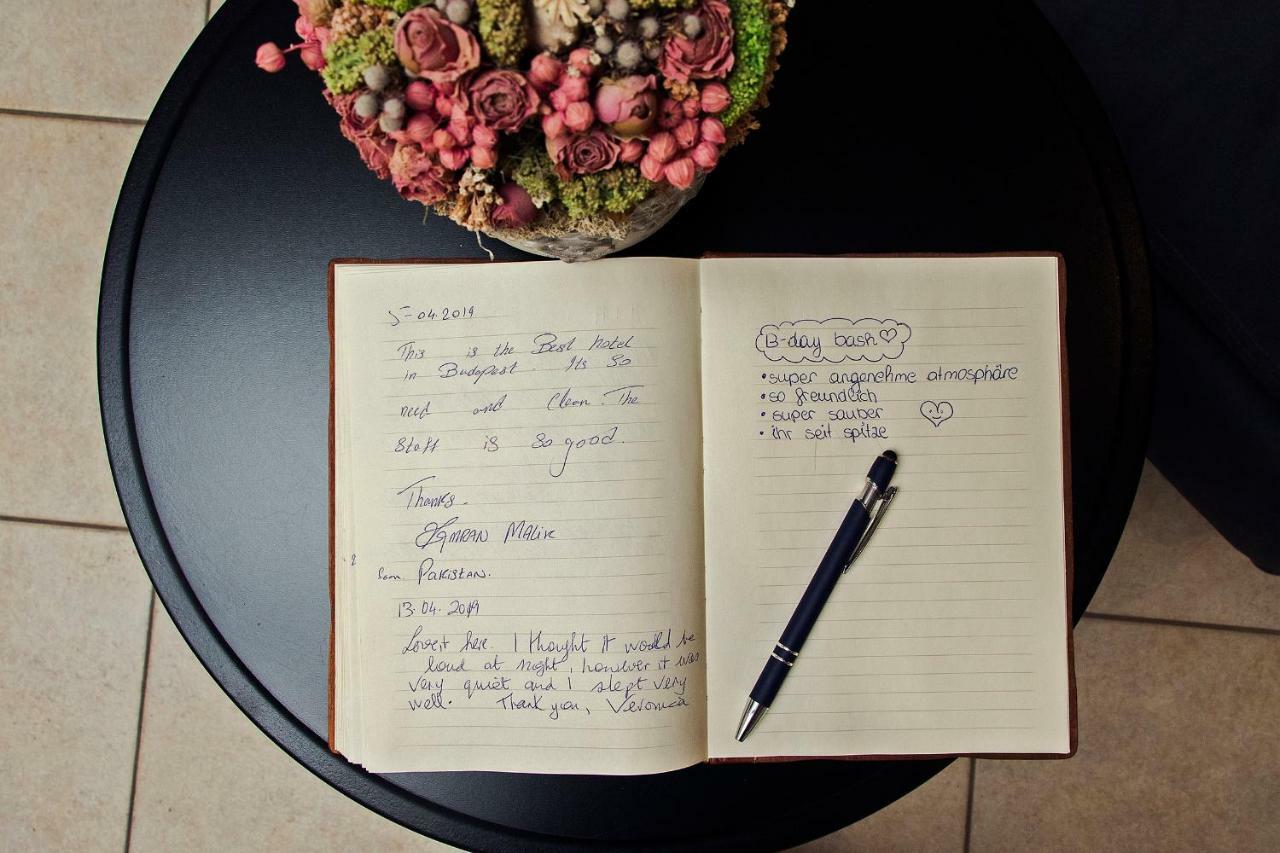 5-04.2019
This is the Best hotel
in Budapest. Its So
need and Clean. The
Staff is So good.
Thanks.
MALIK
from PAKISTAN.
13.04.2019
Love it here. I thought It would be
loud at night, however it was
very quiet and I slept very
well. Thank you, Veronica
B-day bash
•super angenehme atmosphäre
•so freundlich
•super sauber
•ihr seit spitze